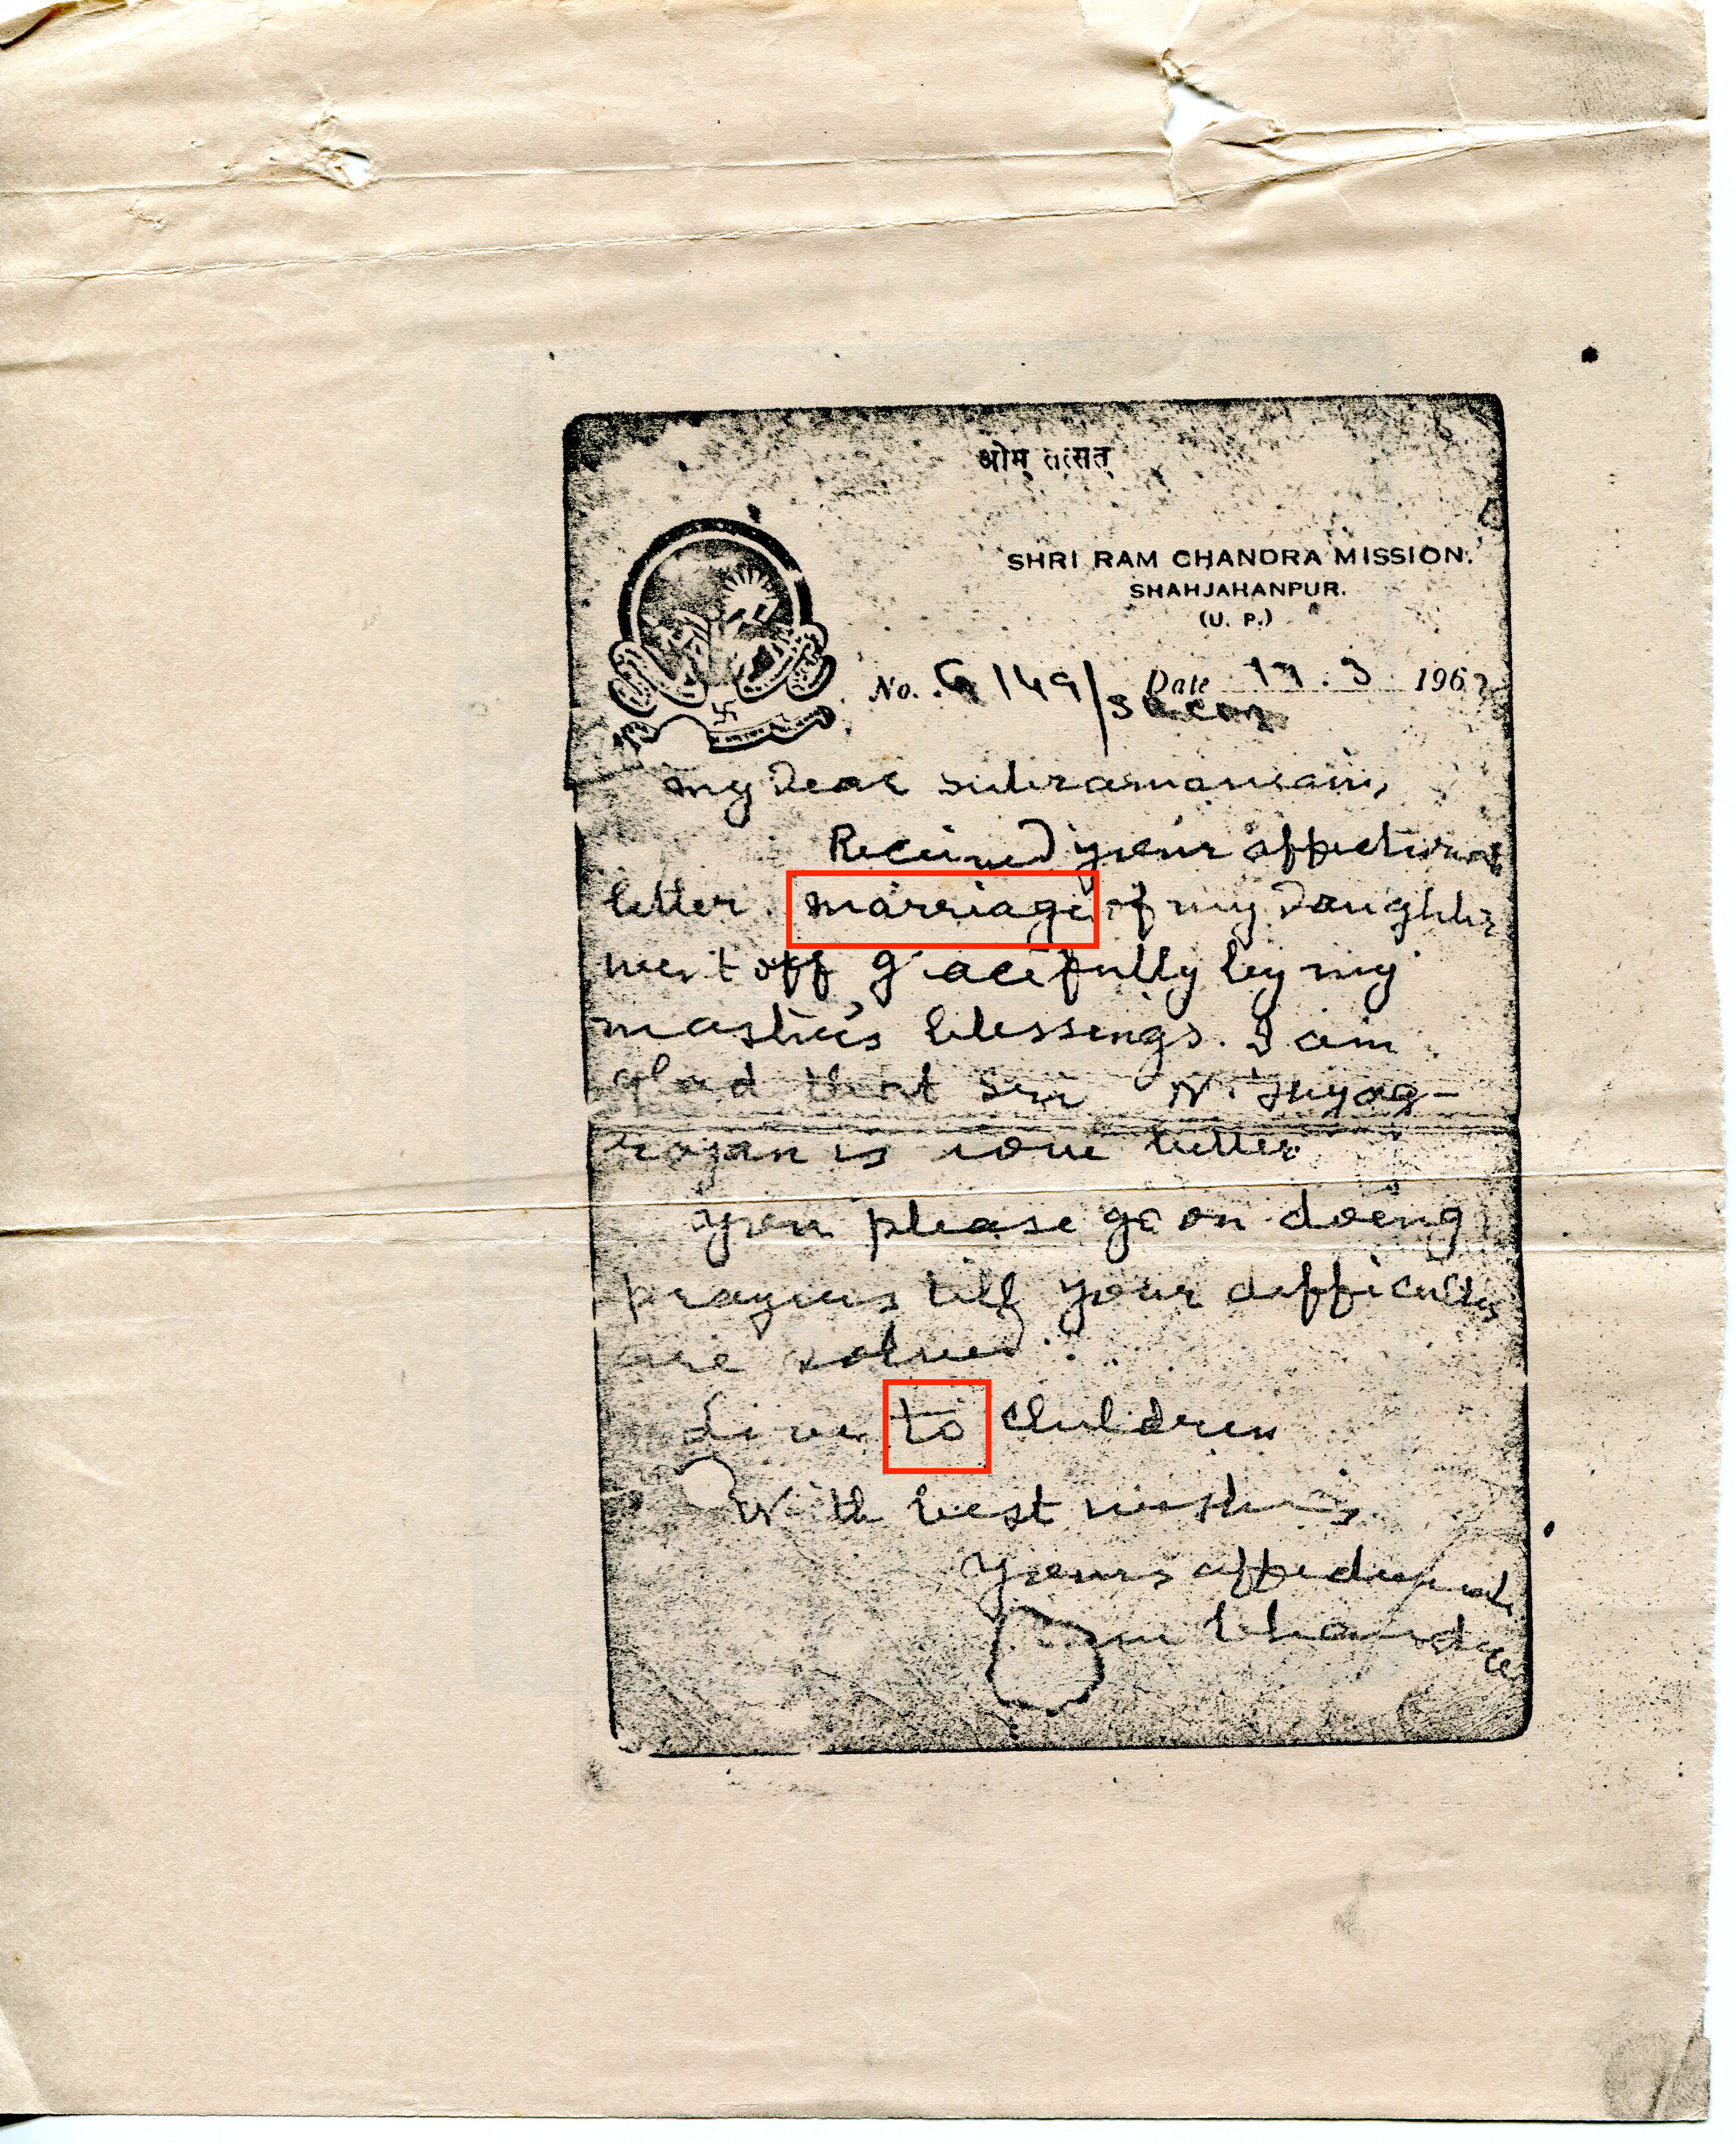 ओम् तत्सत्
SHRI RAM CHANDRA MISSION.
SHAHJAHANPUR.
(U. P.)
No. G 149/ Date 17.3 1967
SRCM
my Dear Subramaniam,
Received your affectionate
letter. marriage of my Daughter
went off gracefully by my
master's blessings. I am
glad that Sri N. Thyag-
rajan is now better
you please go on doing
prayers till your difficulties
are solved.
Love to children
With best wishes
Yours affectionately
Ram Chandra